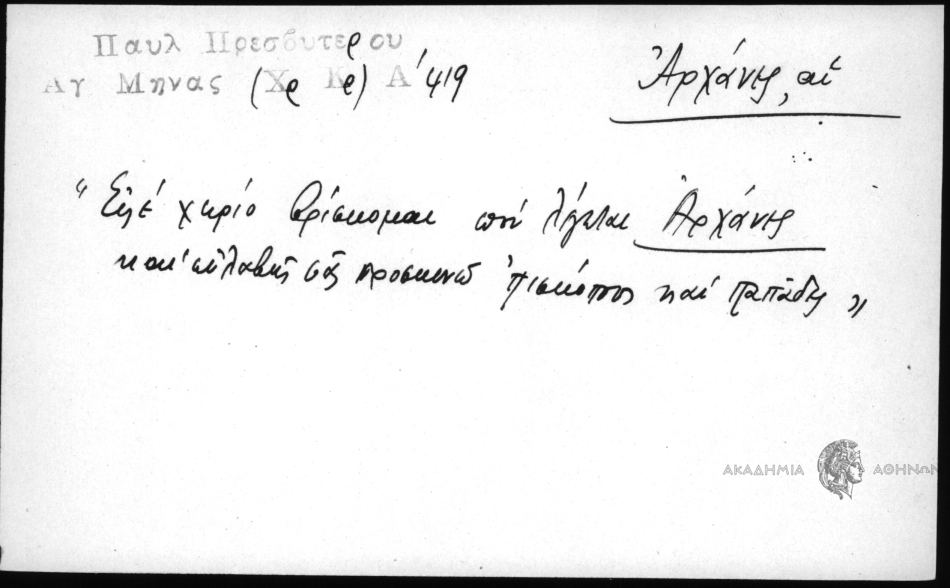 Παυλ Πρεσβυτερου
Αγ Μηνας (Χρ Κρ) Α' 419
Ἀρχάνες, αἱ
"Εἰς ἕ χωριὸ βρίσκομαι ποὺ λέγεται Ἀρχάνες
κι εὐλαβῆς σᾶς προσκυνῶ πισκόπους καὶ παπάδες"
ΑΚΑΔΗΜΙΑ ΑΘΗΝΩΝ